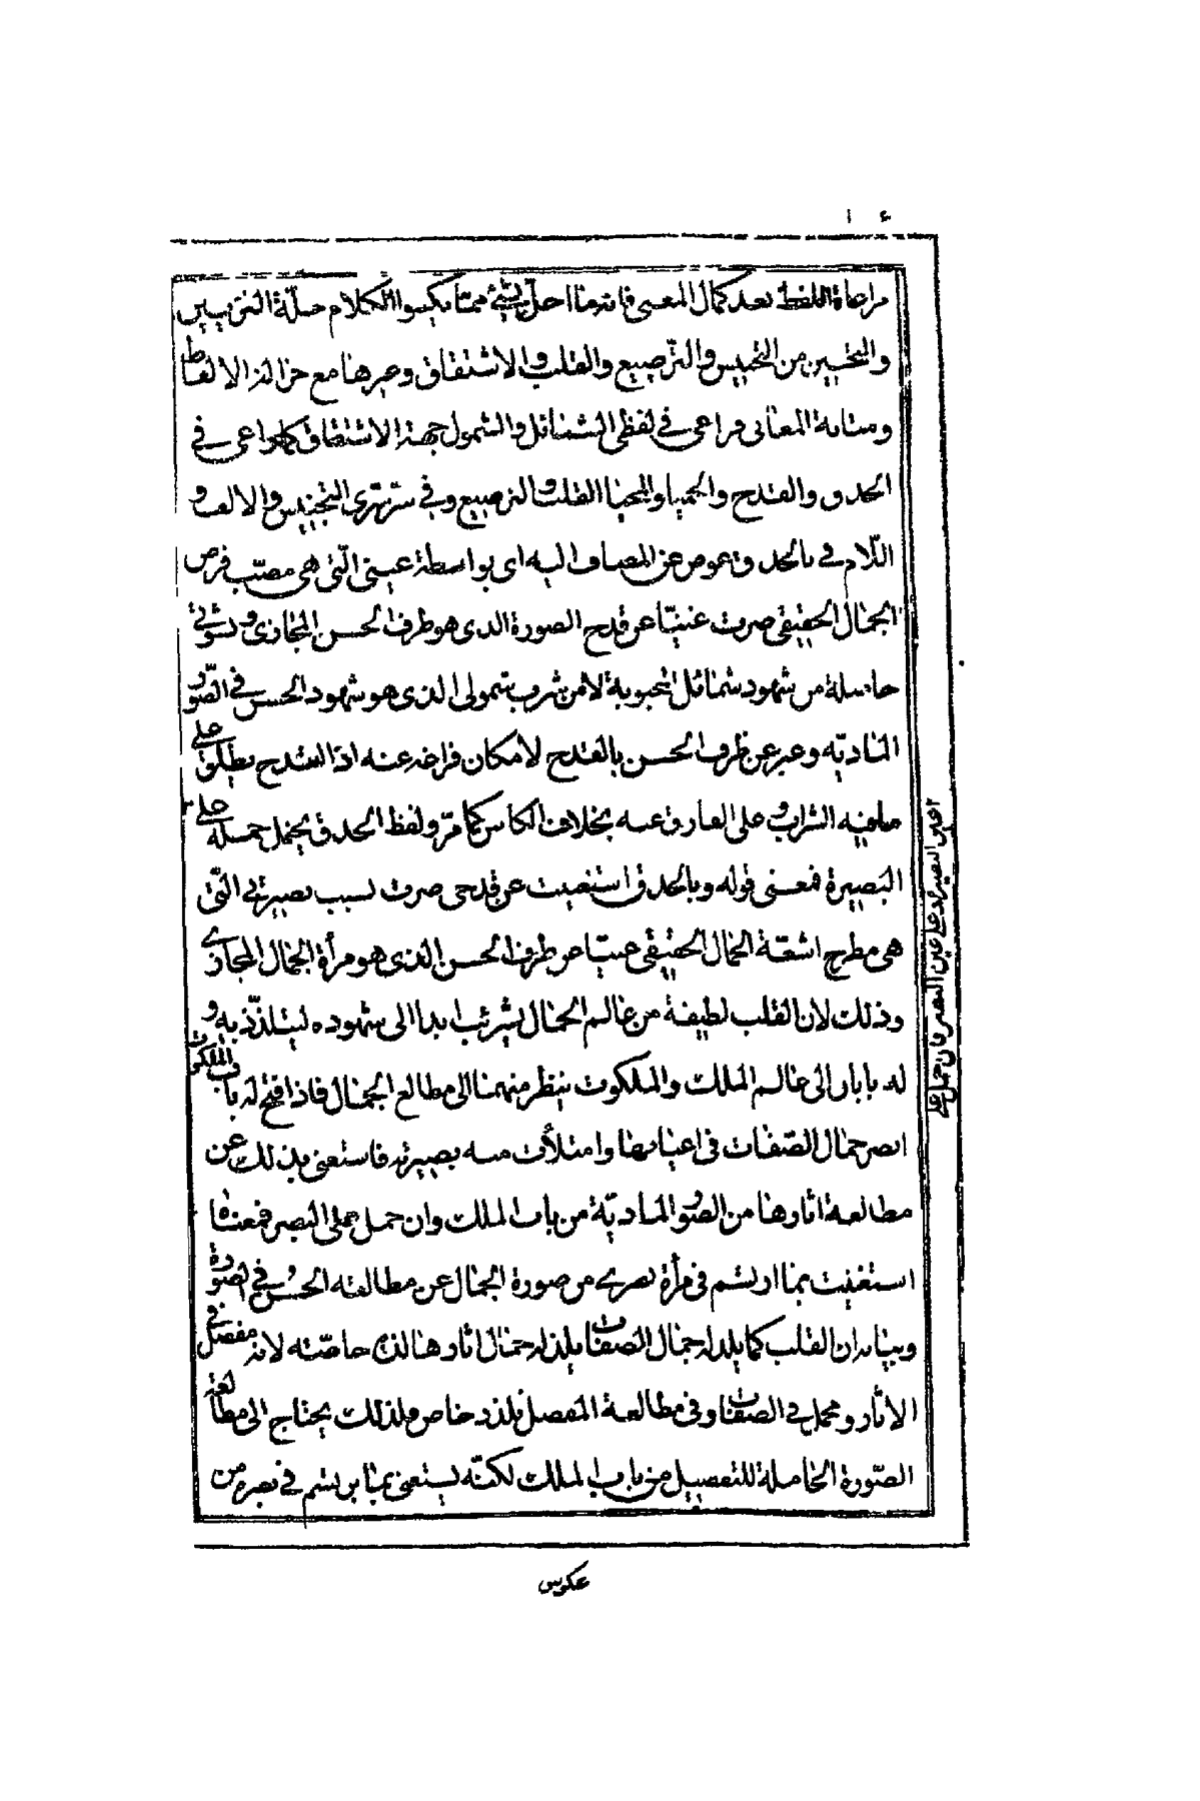 مراعاة اللفظ بعد كمال المعنى فانه ما اخلّ بشئ ممّا يكسو الكلام حلّة التزيين
والتحسين من التجنيس والترصيع والقلب والاشتقاق وغيرها مع جزالة الالفاظ
ومتانة المعانى فراعى فى لفظى الشمائل والشمول جهة الاشتقاق كما راعى فى
الحدق والقدح والحميا والمحيا القلب والترصيع وفى سرّ سرّى التجنيس والالف و
اللام فى بالحدق عوض عن المضاف اليه اى بواسطة عينى الّتى هى مصبّ فرص
الجمال الحقيقى صرت غنيّا عن قدح الصورة الذى هو ظرف الحسن المجازى ونشوتى
حاصلة من شهود شمائل المحبوبة لا من شرب شمولى الذى هو شهود الحسن فى الصور
الماديّه وعبر عن ظرف الحسن بالقدح لامكان فراغه عنه اذ القدح يطلق على
ما فيه الشراب وعلى الفارق عنه بخلاف الكأس كما مرّ ولفظ الحدق يحتمل حمله على
البصيرة فمعنى قوله وبالحدق استغنيت عن قدحى صرت بسبب بصيرتى الّتى
هى مطرح اشعّة الجمال الحقيقى غنيّا عن ظرف الحسن الذى هو مرآة الجمال المجازى
وذلك لان القلب لطيفة من عالم الجمال يشرئب ابدا الى شهوده ليتلذّذ به و
له بابان الى عالم الملك والملكوت ينظر منهما الى مطالع الجمال فاذا فتح له باب الملكوت
ابصر جمال الصّفات فى اعيانها وامتلأت منه بصيرته فاستغنى بذلك عن
مطالعة اثارها من الصور الماديّة من باب الملك وان حمل على البصر فمعناه
استغنيت بما ارتسم فى مرآة بصرى من صورة الجمال عن مطالعته الحسن فى الصورة
وبيانه ان القلب كما يلذ له جمال الصفات يلذ له جمال اثارها لذة خاصّته لانه مفصل فى
الاثار ومجمل فى الصفات وفى مطالعة المفصل تلذذ خاص فلذلك يحتاج الى مطالعة
الصّورة الحاصلة للتفصيل من باب الملك لكنّه يستغنى بما يرتسم فى بصره من
عكوس
عين البصيرة وعلى عين البصر فان حمل على